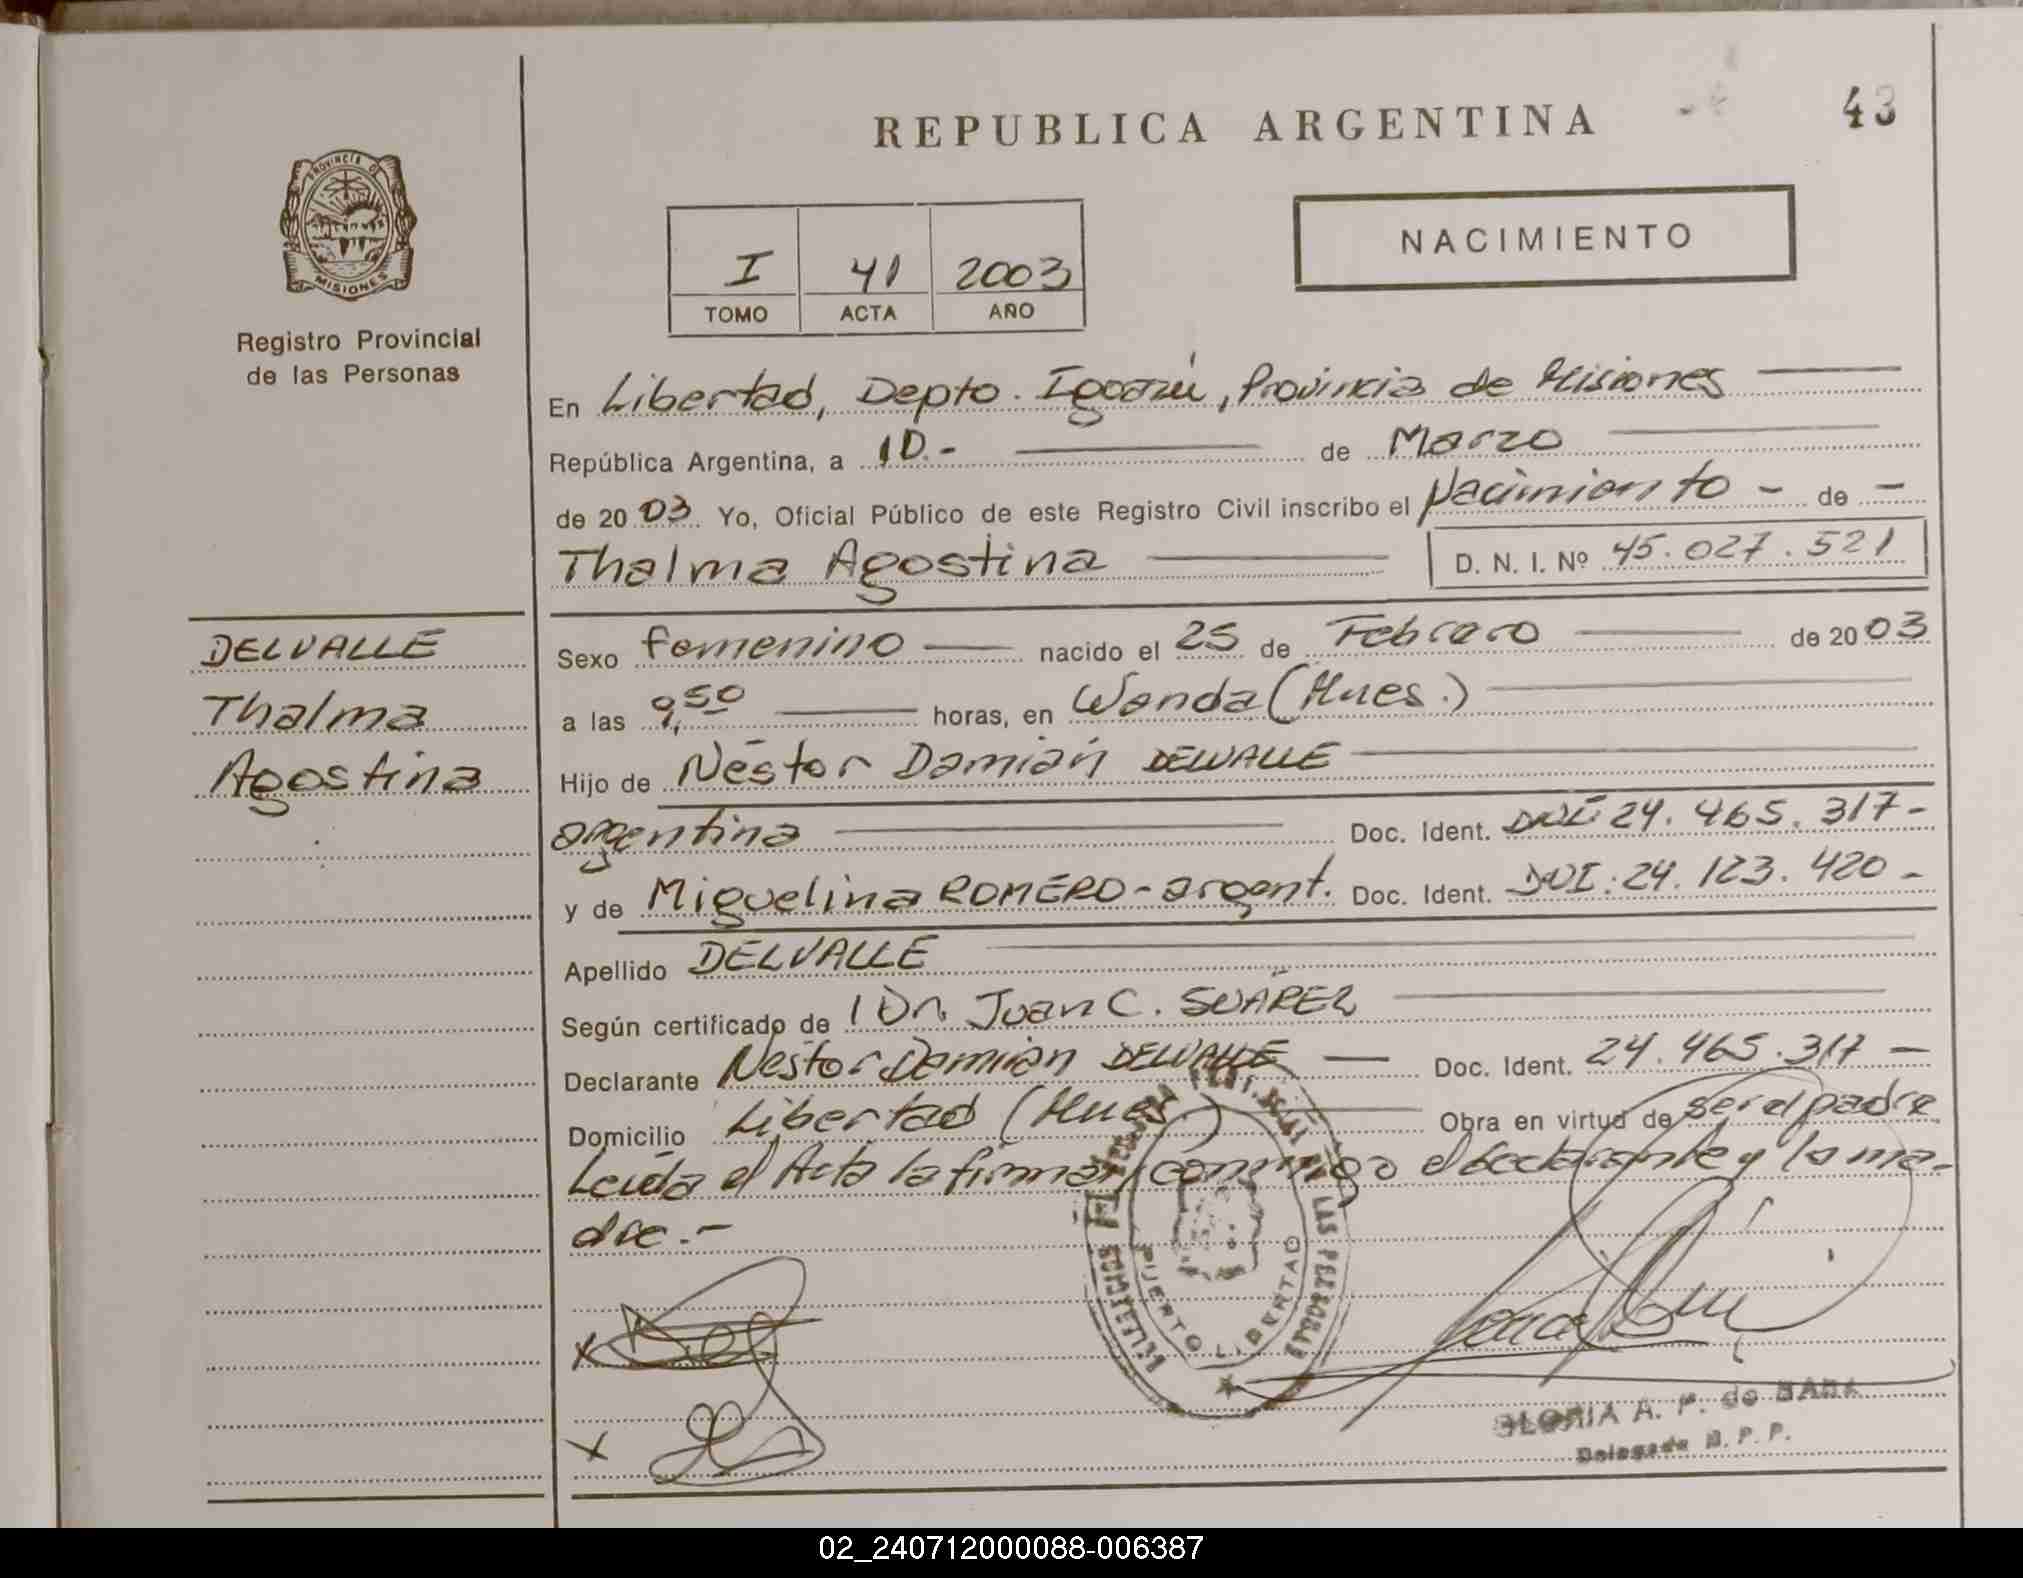 REPUBLICA ARGENTINA
43
PROVINCIA DE MISIONES
Registro Provincial
de las Personas
I 41 2003
TOMO ACTA AÑO
NACIMIENTO
En Libertad, Depto. Iguazú, Provincia de Misiones
República Argentina, a 10.- de Marzo
de 2003 Yo, Oficial Público de este Registro Civil inscribo el Nacimiento - de -
Thalma Agostina D. N. I. Nº 45.027.521
DELVALLE
Thalma
Agostina
Sexo femenino nacido el 25 de Febrero de 2003
a las 9,50 horas, en Wanda (Mnes.)
Hijo de Néstor Damián DELVALLE
argentina Doc. Ident. DNI: 24.465.317-
y de Miguelina ROMERO - argent. Doc. Ident. DNI: 24.123.420-
Apellido DELVALLE
Según certificado de 1 Dr. Juan C. SUÁREZ
Declarante Néstor Damián DELVALLE Doc. Ident. 24.465.317-
Domicilio Libertad (Mnes.) Obra en virtud de ser el padre
Leída el Acta la firman conmigo el declarante y la ma-
dre.-
x
x
PUERTO LIBERTAD
LAS PERSONAS
GLORIA A. P. de
Delegada R. P. P.
02_240712000088-006387